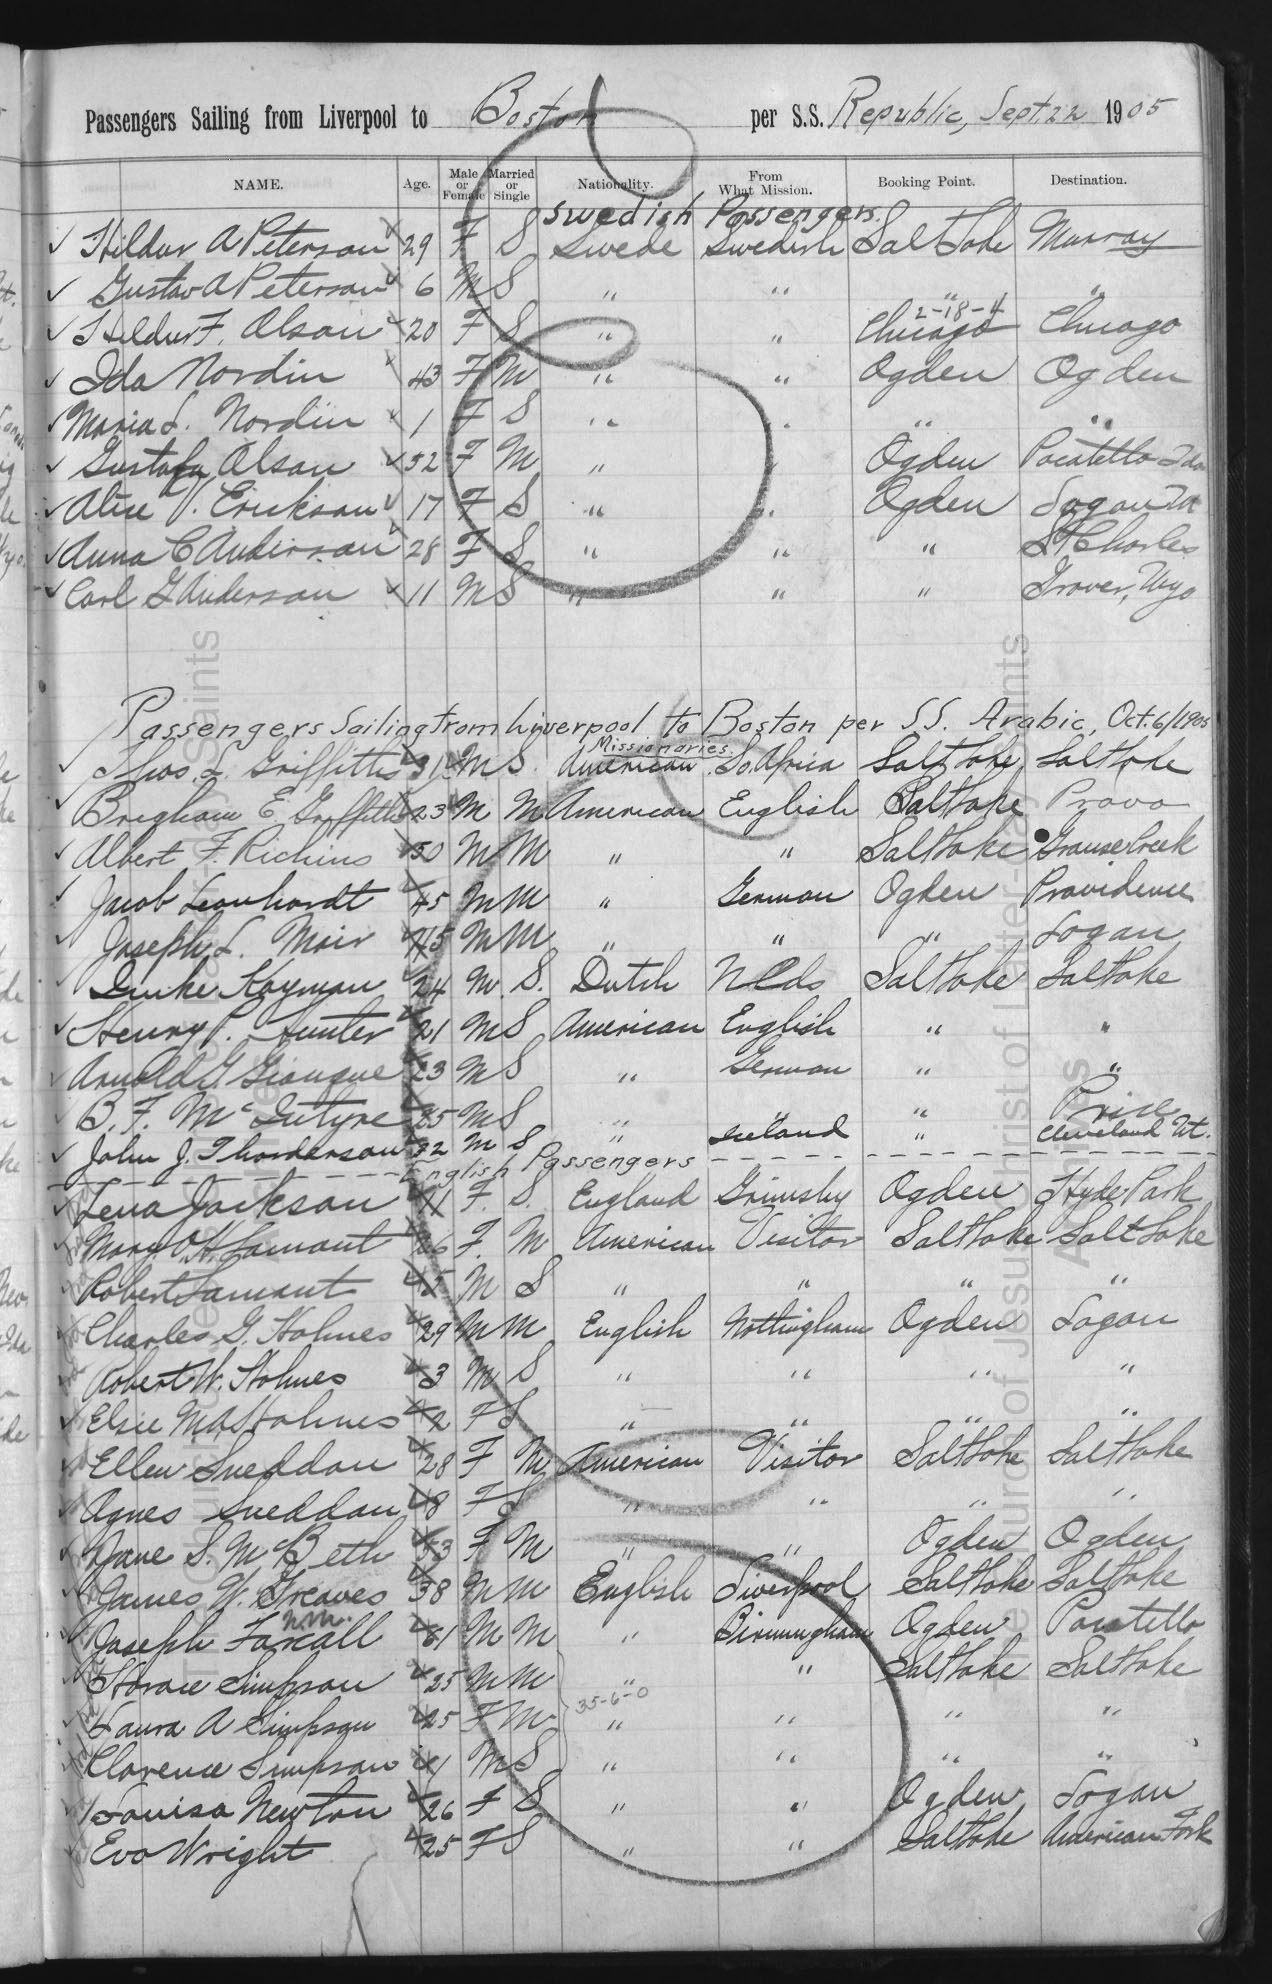 Passengers Sailing from Liverpool to Boston per S.S. Republic, Sept. 22 1905
NAME. Age. Male or Female Married or Single Nationality. From What Mission. Booking Point. Destination.
Swedish Passengers.
Hildur A Peterson 29 F S Swede Swedish Salt Lake Murray
Gustav A Peterson 6 M S " " " "
2-18-4
Hildur F. Olson 20 F S " " Chicago Chicago
Ida Nordin 43 F M " " Ogden Ogden
Maria L. Nordin 1 F S " " " "
Gustafa Olson 52 F M " " Ogden Pocatello Ida
Alice V. Erickson 17 F S " " Ogden Logan
Anna C Anderson 28 F S " " " St Charles
Carl G Anderson 11 M S " " " Grover, Wyo
Passengers Sailing from Liverpool to Boston per S.S. Arabic, Oct. 6/1905
Missionaries.
Thos. L. Griffiths 31 M S. American So. Africa Salt Lake Salt Lake
Brigham E. Griffiths 23 M M American English Salt Lake Provo
Albert F. Richins 50 M M " " Salt Lake Grouse Creek
Jacob Leonhardt 45 M M " German Ogden Providence
Joseph L. Moir 45 M M " " " Logan
Kayman 24 M. S. Dutch Nlds Salt Lake Salt Lake
Henry P. Hunter 21 M S American English " "
Arnold G. Giauque 23 M S " German " "
B. F. McIntyre 25 M S " " Price
John J. Thordarson 32 M S " Iceland " Cleveland Ut.
English Passengers
Lena Jackson 11 F. S. England Grimsby Ogden Hyde Park
Mary O H Lamont 26 F. M American Visitor Salt Lake Salt Lake
Robert Lamont 45 M S " " " "
Charles G. Holmes 29 M M English Nottingham Ogden Logan
Robert W. Holmes 3 M S " " " "
Elsie M A Holmes 2 F S " " " "
Ellen Sneddon 28 F M American Visitor Salt Lake Salt Lake
Agnes Sneddon 8 F S " " " "
Jane S. McBeth 53 F M " " Ogden Ogden
James W. Greaves 38 M M English Liverpool Salt Lake Salt Lake
n.m.
Joseph Foxall 61 M M " Birmingham Ogden Pocatello
Horace Simpson 25 M M " " Salt Lake Salt Lake
35-6-0
Laura A Simpson 25 F M " " " "
Clarence Simpson 1 M S " " " "
Louisa Newton 26 F S " " Ogden Logan
Eva Wright 25 F S " " Salt Lake American Fork